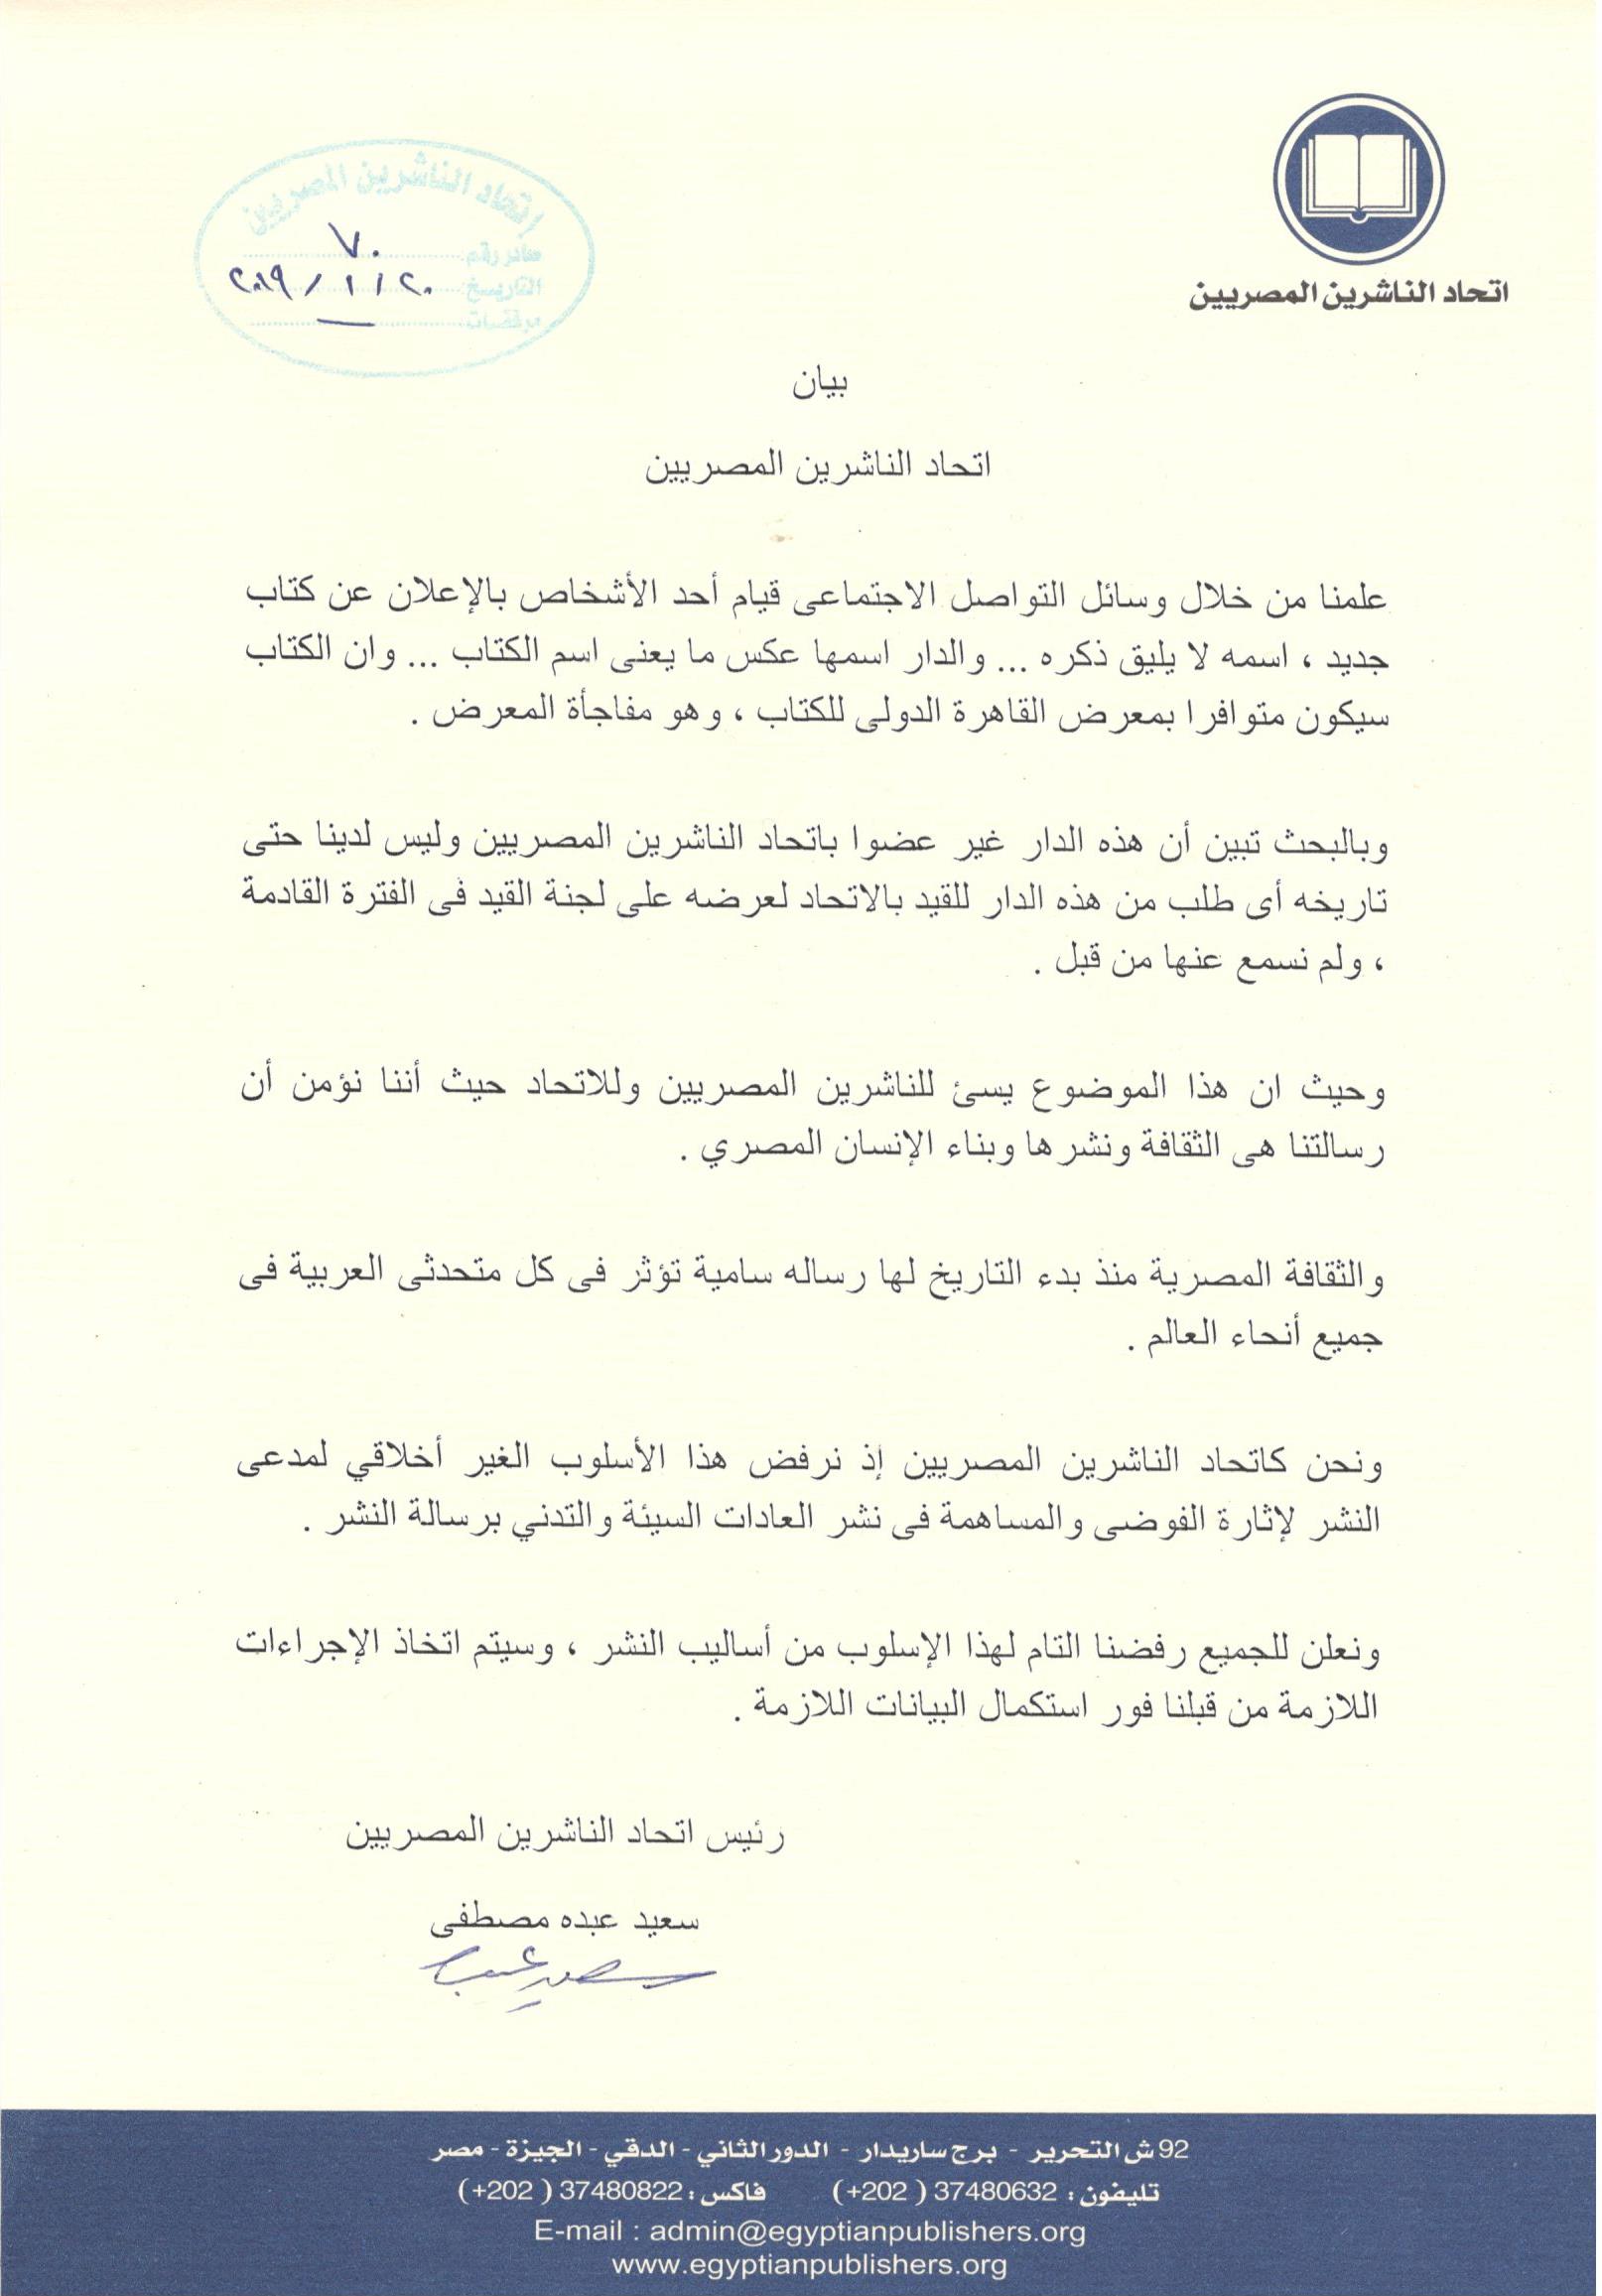 اتحاد الناشرين المصريين
اتحاد الناشرين المصريين
صادر رقم: ٧٠
التاريخ: ٢٠ / ١ / ٢٠١٩
مرفقات: —
بيان
اتحاد الناشرين المصريين
علمنا من خلال وسائل التواصل الاجتماعى قيام أحد الأشخاص بالإعلان عن كتاب
جديد ، اسمه لا يليق ذكره ... والدار اسمها عكس ما يعنى اسم الكتاب ... وان الكتاب
سيكون متوافرا بمعرض القاهرة الدولى للكتاب ، وهو مفاجأة المعرض .
وبالبحث تبين أن هذه الدار غير عضوا باتحاد الناشرين المصريين وليس لدينا حتى
تاريخه أى طلب من هذه الدار للقيد بالاتحاد لعرضه على لجنة القيد فى الفترة القادمة
، ولم نسمع عنها من قبل .
وحيث ان هذا الموضوع يسئ للناشرين المصريين وللاتحاد حيث أننا نؤمن أن
رسالتنا هى الثقافة ونشرها وبناء الإنسان المصري .
والثقافة المصرية منذ بدء التاريخ لها رساله سامية تؤثر فى كل متحدثى العربية فى
جميع أنحاء العالم .
ونحن كاتحاد الناشرين المصريين إذ نرفض هذا الأسلوب الغير أخلاقي لمدعى
النشر لإثارة الفوضى والمساهمة فى نشر العادات السيئة والتدني برسالة النشر .
ونعلن للجميع رفضنا التام لهذا الإسلوب من أساليب النشر ، وسيتم اتخاذ الإجراءات
اللازمة من قبلنا فور استكمال البيانات اللازمة .
رئيس اتحاد الناشرين المصريين
سعيد عبده مصطفى
سعيد عبده
92 ش التحرير - برج ساريدار - الدور الثاني - الدقي - الجيزة - مصر
تليفون : 37480632 ( 202+) فاكس : 37480822 ( 202+)
E-mail : admin@egyptianpublishers.org
www.egyptianpublishers.org